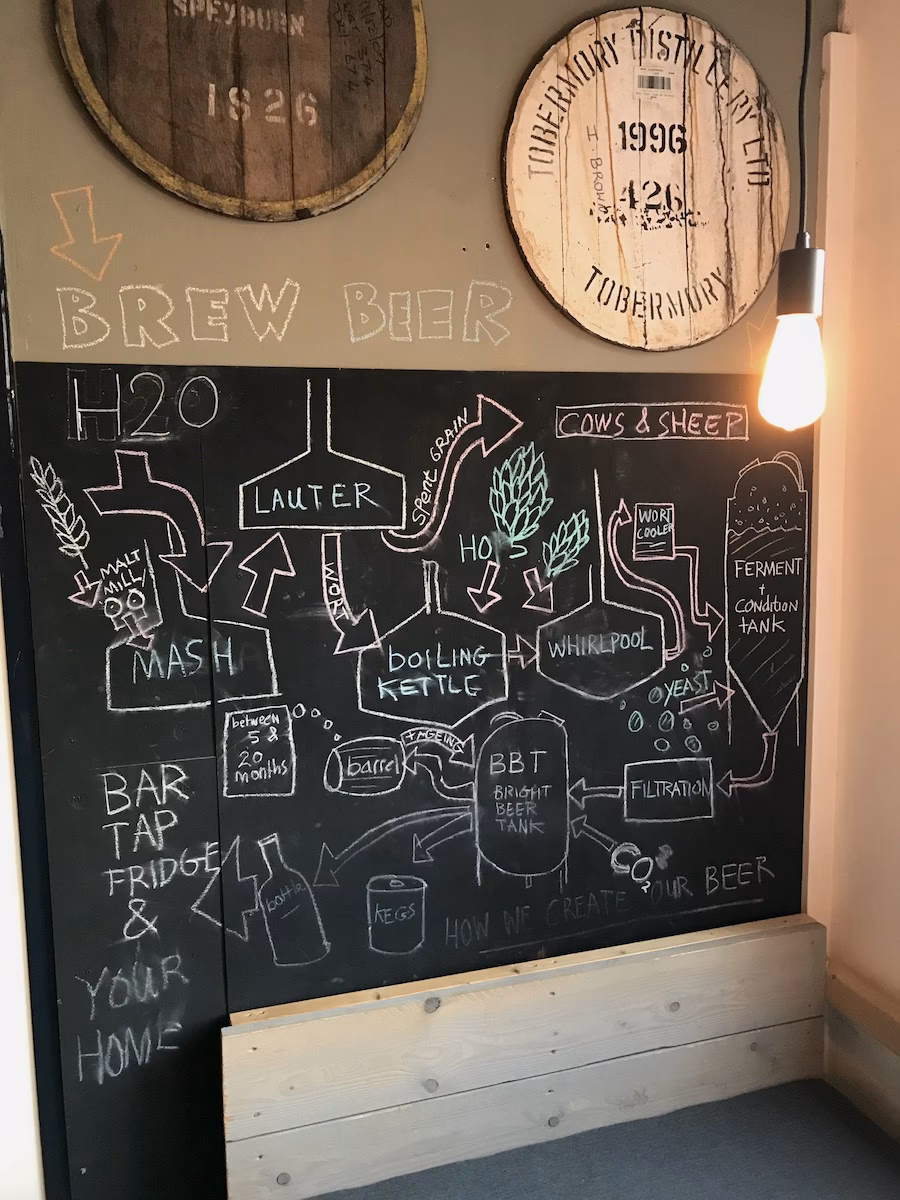 SPEYBURN
1826
TOBERMORY DISTILLERY LTD
1996
426
H BROWN
TOBERMORY
BREW BEER
H2O
COWS & SHEEP
LAUTER
SPENT GRAIN
WORT
COOLER
MALT
MILL
HOPS
WORT
FERMENT
+
CONDITION
TANK
MASH
BOILING
KETTLE
WHIRLPOOL
YEAST
between
5 &
20
months
barrel
+AGEING
BBT
BRIGHT
BEER
TANK
FILTRATION
CO2
BAR
TAP
FRIDGE
&
YOUR
HOME
bottle
KEGS
HOW WE CREATE OUR BEER